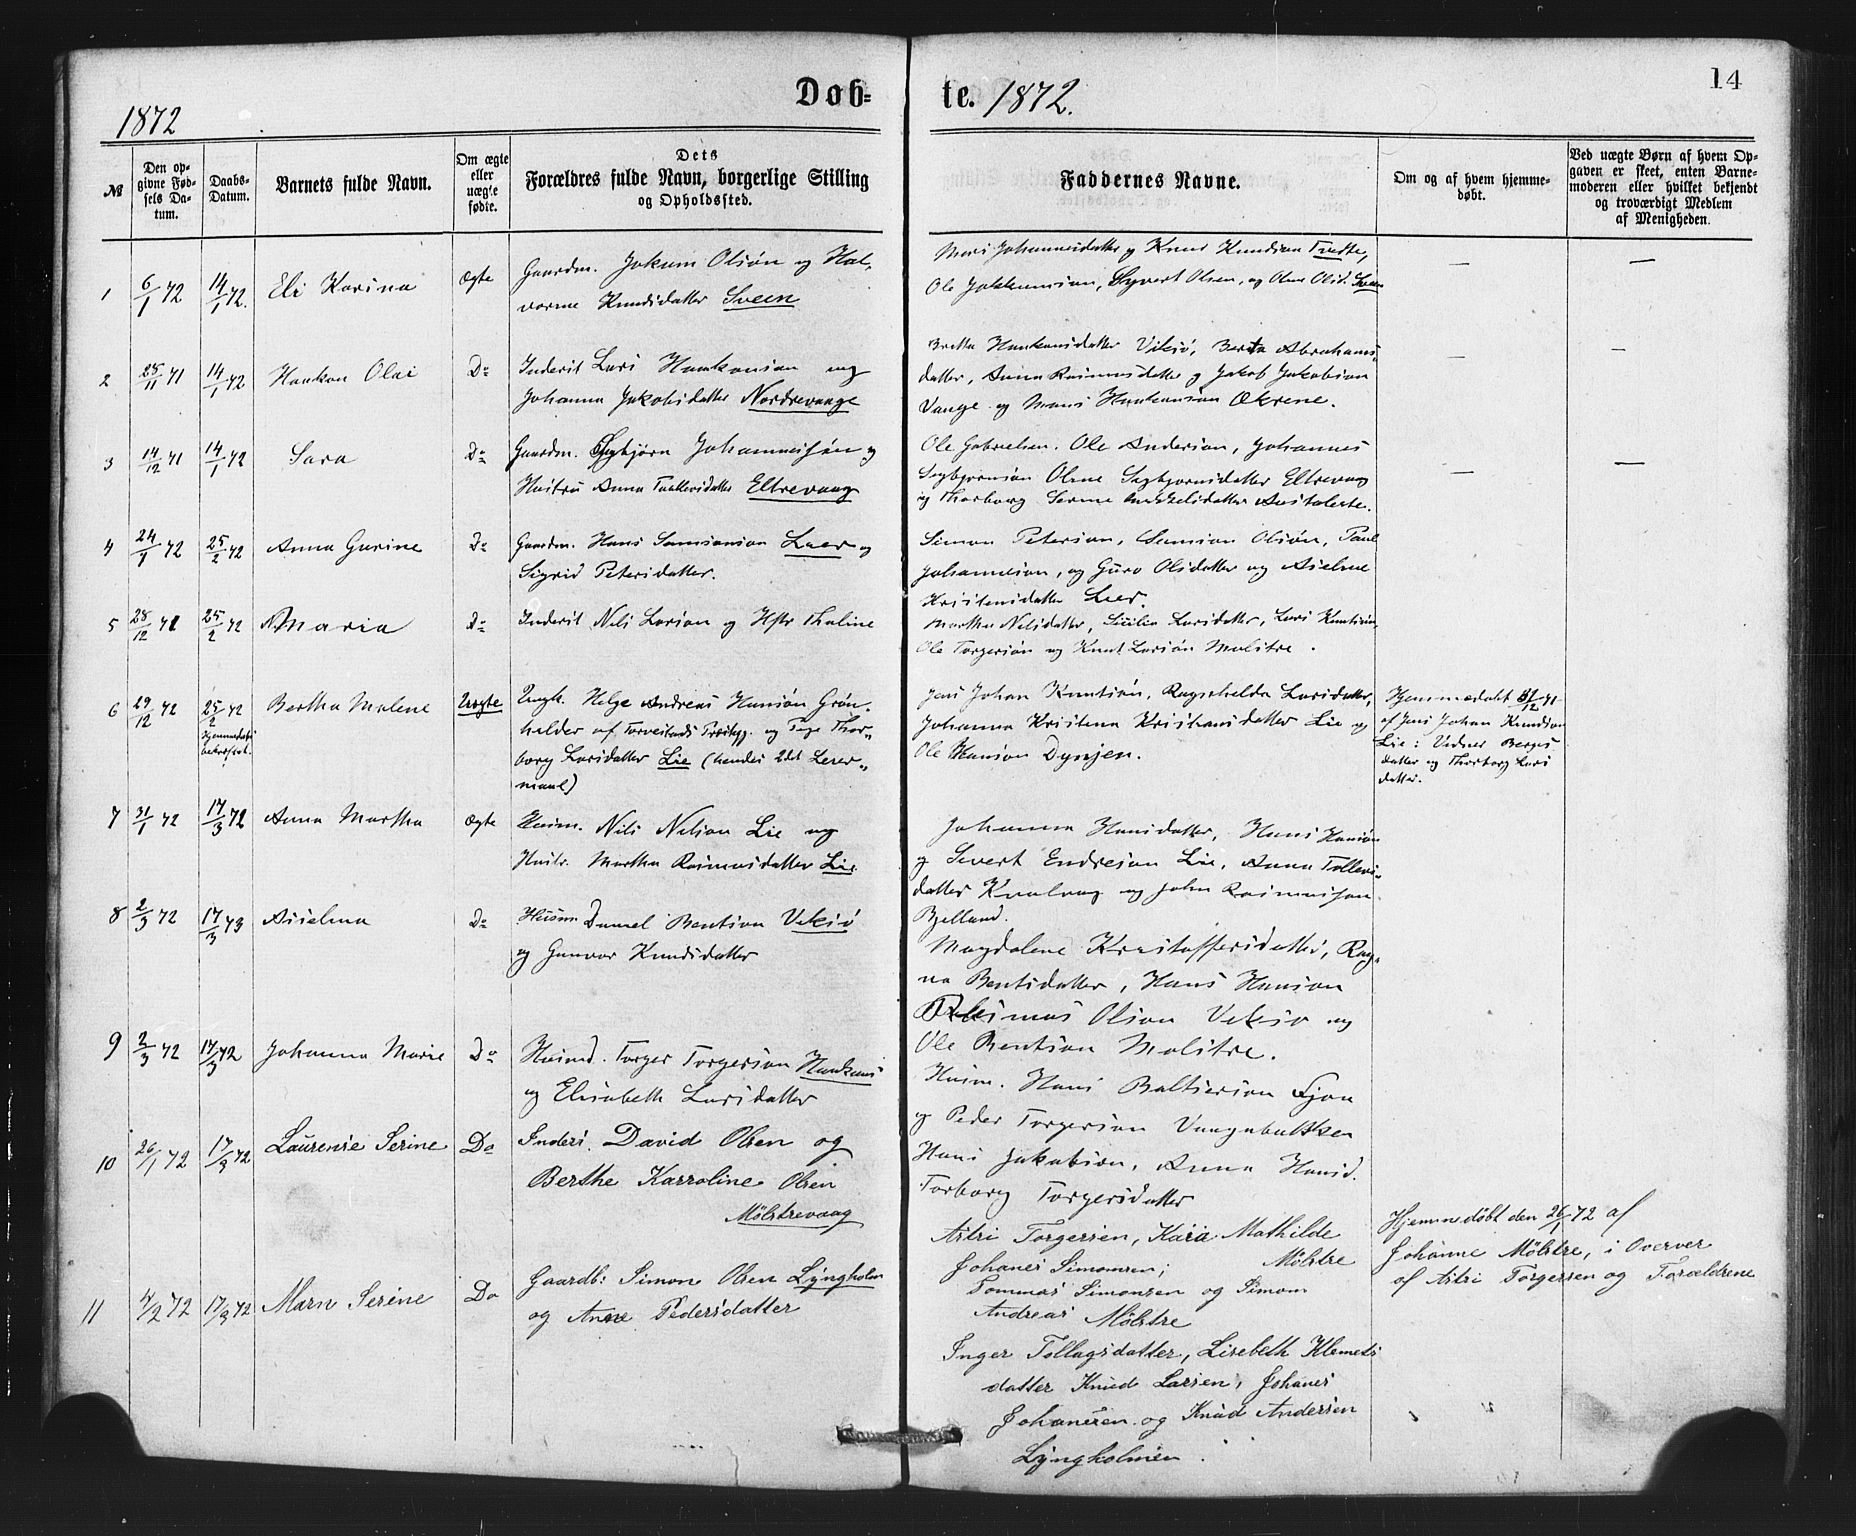 14
Døb=
te. 1872.
1872
№
Den op-
givne Fød-
sels Da-
tum.
Daabs-
Datum.
Barnets fulde Navn.
Om ægte
eller
uægte
fødte.
Dets
Forældres fulde Navn, borgerlige Stilling
og Opholdssted.
Faddernes Navne.
Om og af hvem hjemme-
døbt.
Ved uægte Børn af hvem Op-
gaven er skeet, enten Barne-
moderen eller hvilket bekjendt
og troværdigt Medlem
af Menigheden.
1 6/1 72 14/1 72. Eli Karina Ægte
Gaardm. Jokum Olsøn og Hal-
vorme Knudsdatter Sveen
Mari Johannesdatter og Knud Knudsøn Tvedte,
Ole Jokkumsøn, Syvert Olsen, og Oline Olsd. Sveen
— —
2 25/11 71 14/1 72 Haakon Olai Do
Inderst Lars Haakonsøn og
Johanna Jakobsdatter Nordrevaage
Britta Haakonsdatter Viksø, Berta Abrahams-
datter, Anna Rasmusdatter og Jakob Jakobsøn
Vaage og Mons Haakonsøn Økrene.
— —
3 14/12 71 14/1 72 Sara Do
Gaardm. Sygbjørn Johannessøn og
Hustru Anna Tollevsdatter Eltrevaag
Ole Gabrielsen. Ole Andersøn, Johannes
Sygbjørnsøn Oline Sygbjørnsdatter Eltrevaag
og Thorborg Serine Omkjelsdatter Austalerte.
— —
4 24/1 72 25/2 72 Anna Gurine Do
Gaardm. Hans Samsonsøn Leer og
Sigrid Petersdatter.
Simon Petersøn, Samson Olsøn, Paul
Johannesøn, og Guro Olsdatter og Aseline
Kristensdatter Leer.
5 28/12 71 25/2 72 Maria Do
Inderst Nels Larsøn og Hstr Thaline
Martha Nelsdatter, Sicilia Larsdatter, Lars Knutsøn,
Ole Torgersøn og Knut Larsøn Molstre.
6 29/12 72 25/2 72
Hjemmedaab
bekræftet.
Bertha Malene Uægte
Ungk. Helge Andreas Hansøn Grøn-
helder af Torvestads Præstegj. og Pige Thor-
borg Larsdatter Lie (hendes 2det Leier-
maal)
Jens Johan Knutsøn, Ragnhilda Larsdatter,
Johanna Kristena Kristiansdatter Lie og
Ole Hansøn Dynjen.
Hjemmedøbt 31/12 71
af Jens Johan Knudsøn
Lie: Vidner Berges
datter og Thorborg Lars
datter.
7 31/1 72 17/3 72 Anna Martha Ægte
Husm. Nils Nelson Lie og
Hustr. Martha Rasmusdatter Lie.
Johanna Hansdatter, Hans Hansøn
og Severt Endresøn Lie, Anna Tollevs-
datter Kvalvaag og John Rasmussøn
Bjelland.
8 2/3 72 17/3 73 Aselina Do
Husm. Daniel Bentsøn Viksø
og Gunvor Knudsdatter
Magdalene Kristoffersdatter, Rag-
na Bentsdatter, Hans Hansøn
Rasmus Olsøn Viksø og
Ole Bentsøn Molstre.
9 2/3 72 17/3 72 Johanna Marie Do
Husmd. Torger Torgersøn Haakans
og Elisabeth Larsdatter
Husm. Hans Baltsersøn Fjon
og Peder Torgersøn Vaagabakken
Hans Jakobsøn, Anna Hansd.
Torborg Torgersdatter
10 26/1 72 17/3 72 Laurense Serine Do
Inders. David Olsen og
Berthe Karroline Olsen
Mølstrevaag
Astri Torgersen, Kaia Mathilde
Johanes Simonsen; Mølstre
Tommas Simonsen og Simon
Andreas Mølstre
Hjemmedøbt den 26/1 72 af
Johanne Mølstre, i Overver
af Astri Torgersen og Forældrene
11 4/2 72 17/3 72 Marn Serine Do
Gaardb: Simon Olsen Lyngholm
og Anne Pedersdatter
Inger Tollagsdatter, Lisebeth Klemets
datter Knud Larsen, Johanes
Johanesen og Knud Andersen
Lyngholmen.